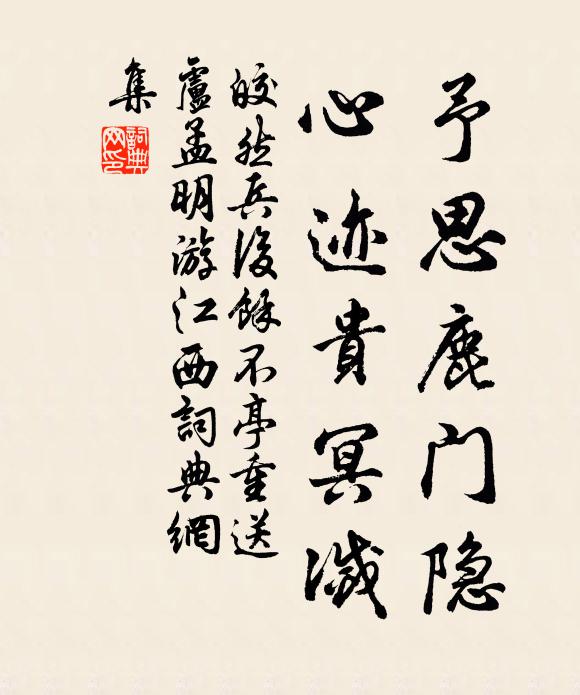 予思鹿门隐
心迹貴冥滅
皎然兵後餘不亭重送
盧孟明游江西詞典網
集
詞典網印